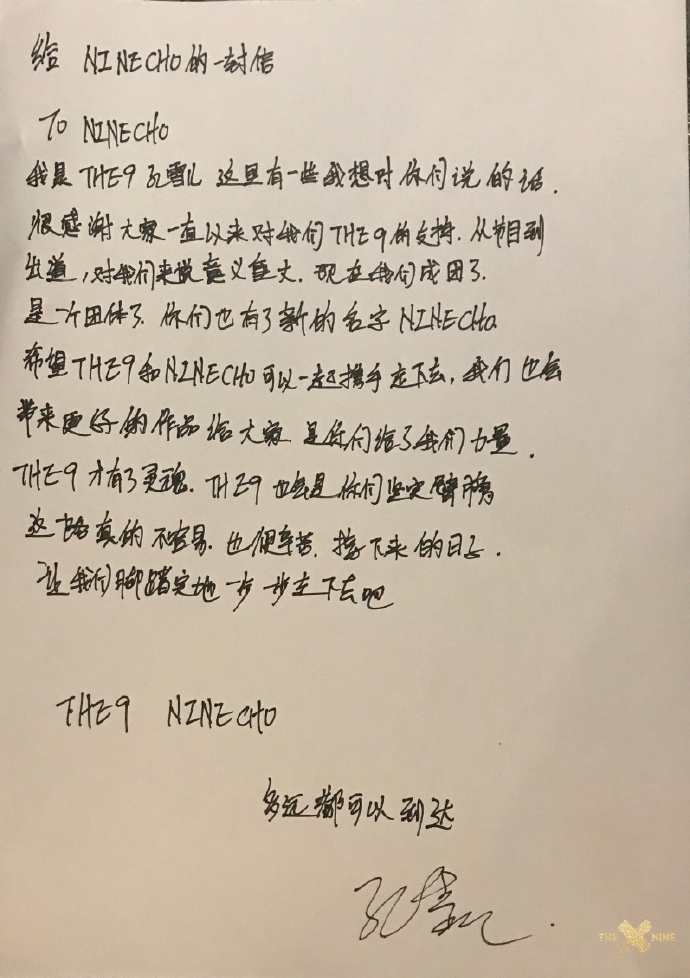 给 NINECHO的一封信
To NINECHO
我是 THE9 孔雪儿 这里有一些我想对你们说的话.
很感谢大家一直以来对我们THE9的支持. 从节目到
出道, 对我们来说意义重大. 现在我们成团了.
是一个团体了. 你们也有了新的名字 NINECHO.
希望THE9和NINECHO可以一起携手走下去, 我们也会
带来更好的作品给大家 是你们给了我们力量.
THE9才有了灵魂. THE9也会是你们坚实臂膀
这一路真的不容易. 也很辛苦. 接下来的日子.
让我们脚踏实地一步一步走下去吧
THE9 NINECHO
多远都可以到达
孔雪儿.
THE NINE